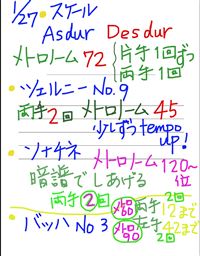 1/27 • スケール
Asdur Desdur
メトロノーム 72 片手1回ずつ
両手1回
• ツェルニー No.9
両手2回 メトロノーム 45
少しずつtempo up!
• ソナチネ
メトロノーム 120~位
暗譜でしあげる
両手②回
• バッハ No 3 メトロ60 両手2回 12まで
メトロ90 左手2回 42まで